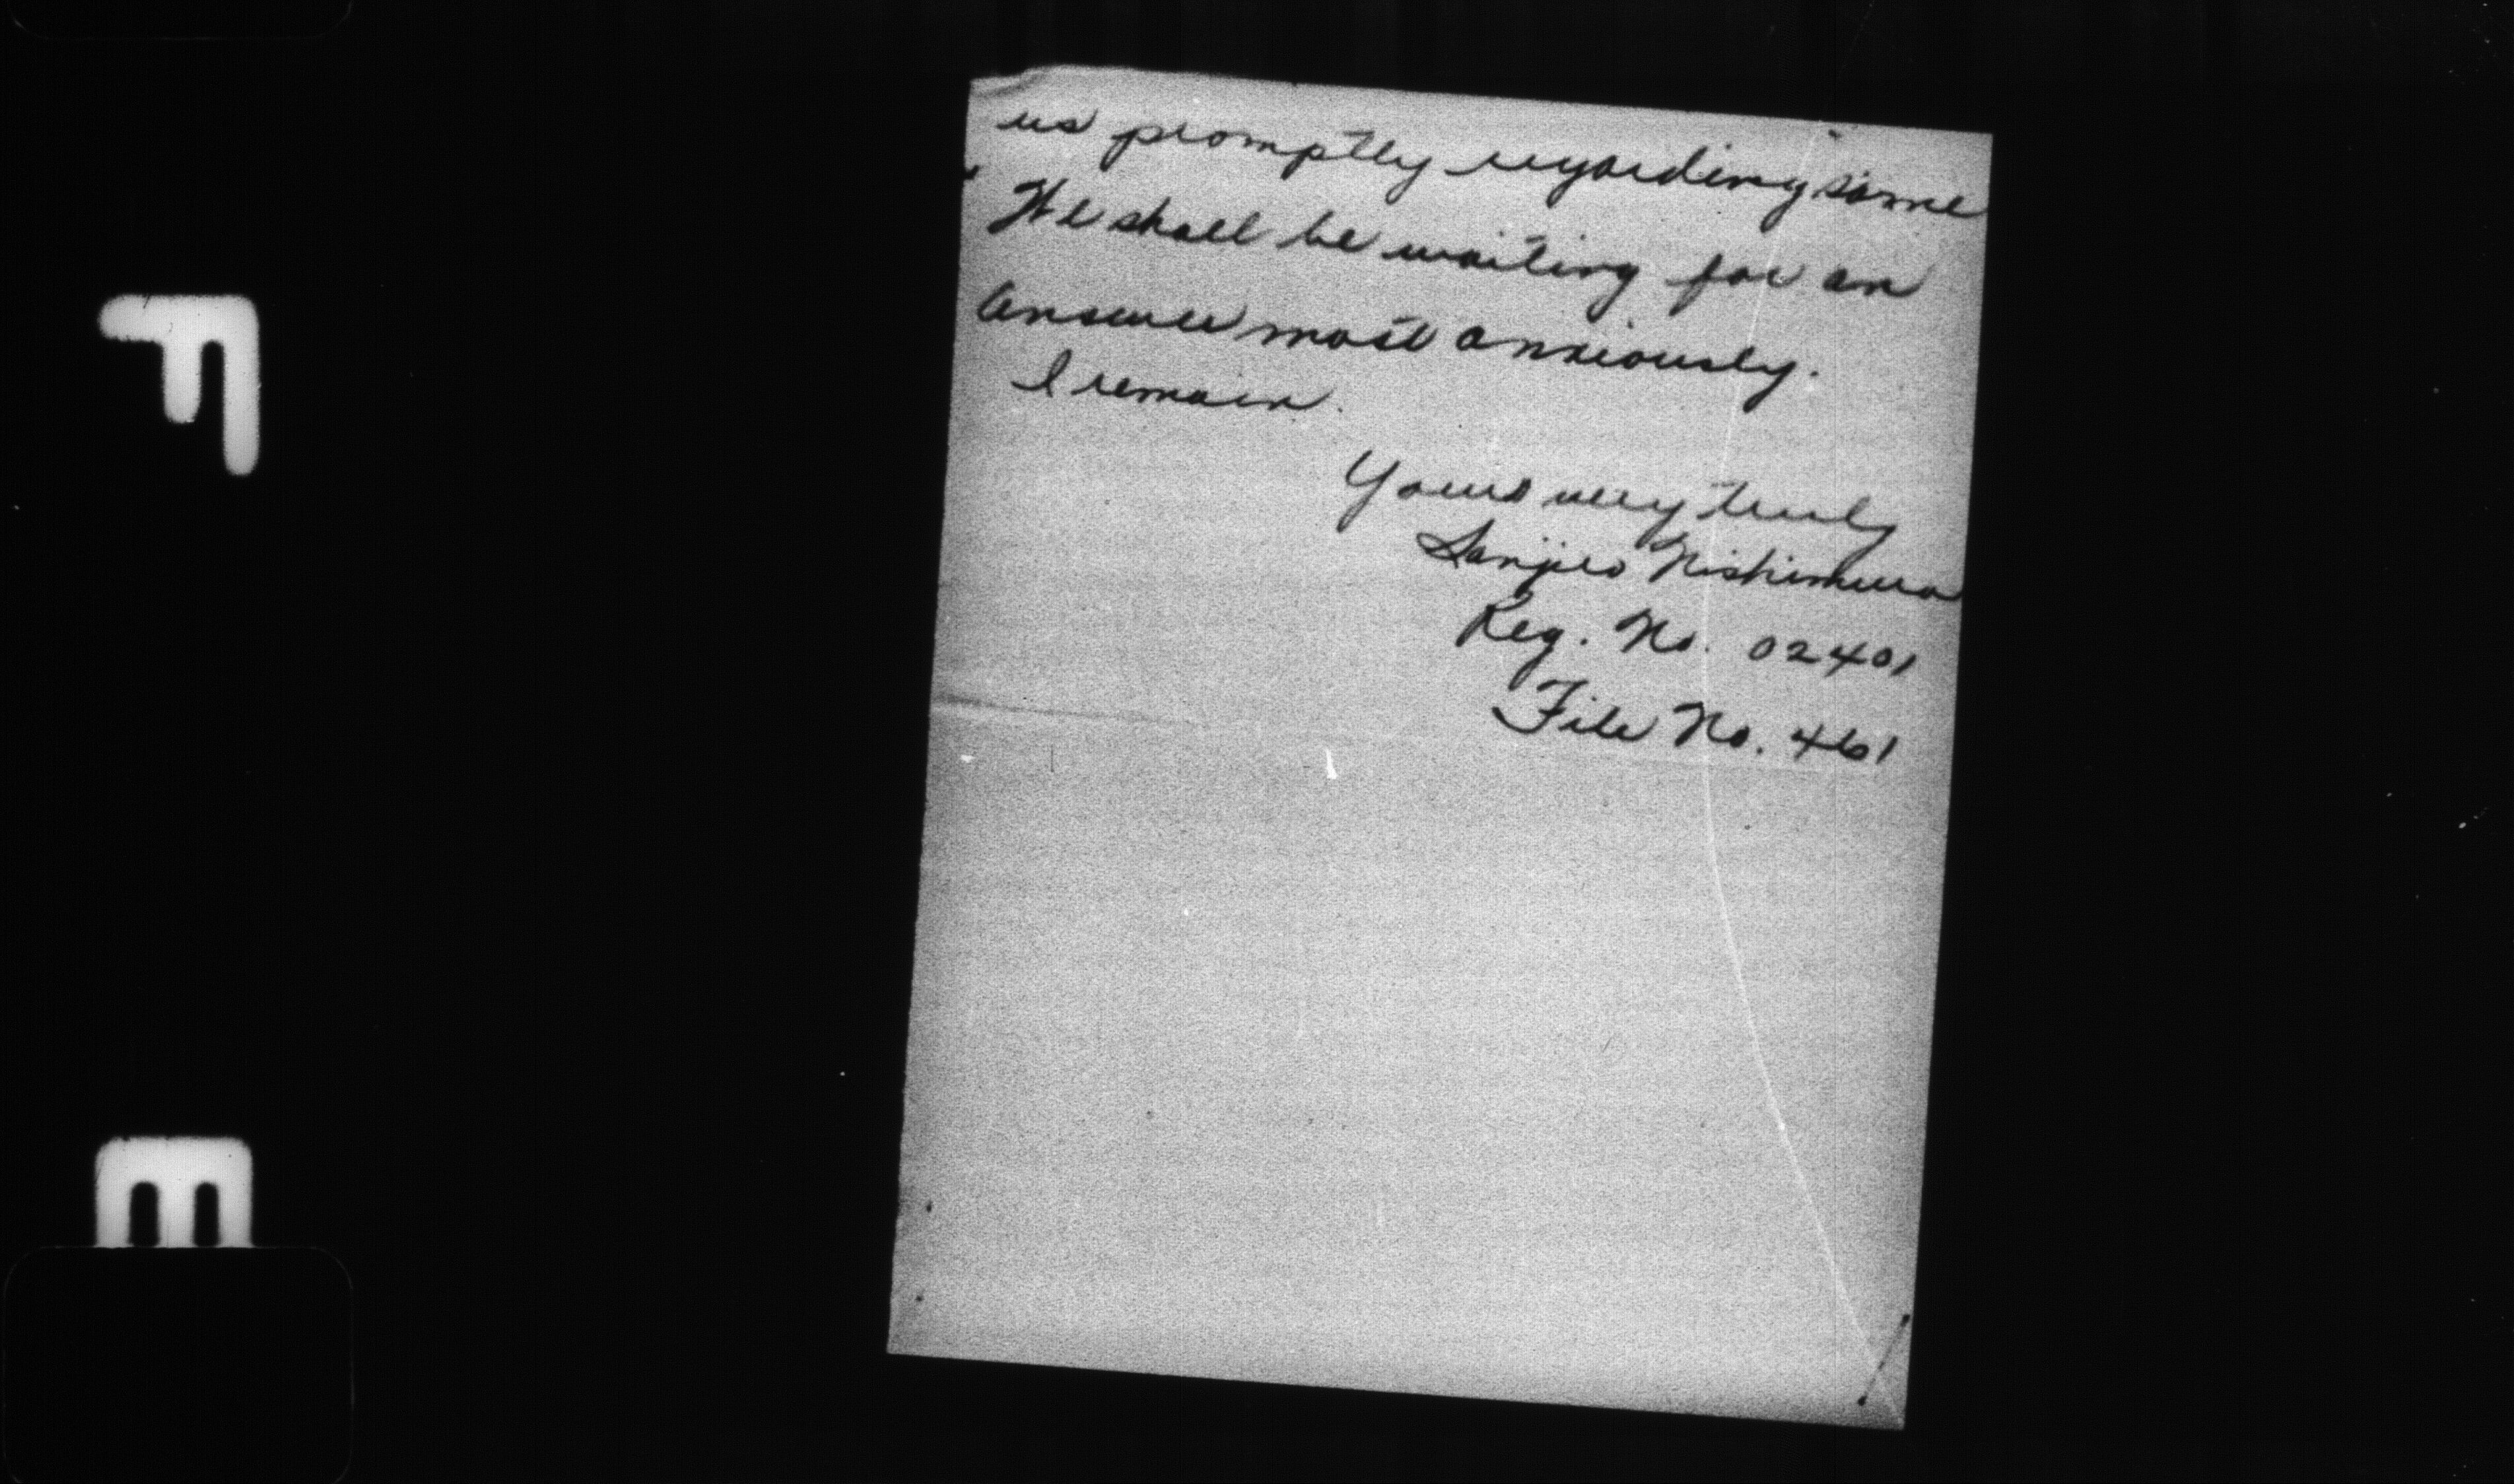 us promptly regarding same
We shall be waiting for an
answer most anxiously.
I remain.
Yours very truly
Sanjiro Nishimura
Reg. No. 02401
File No. 461